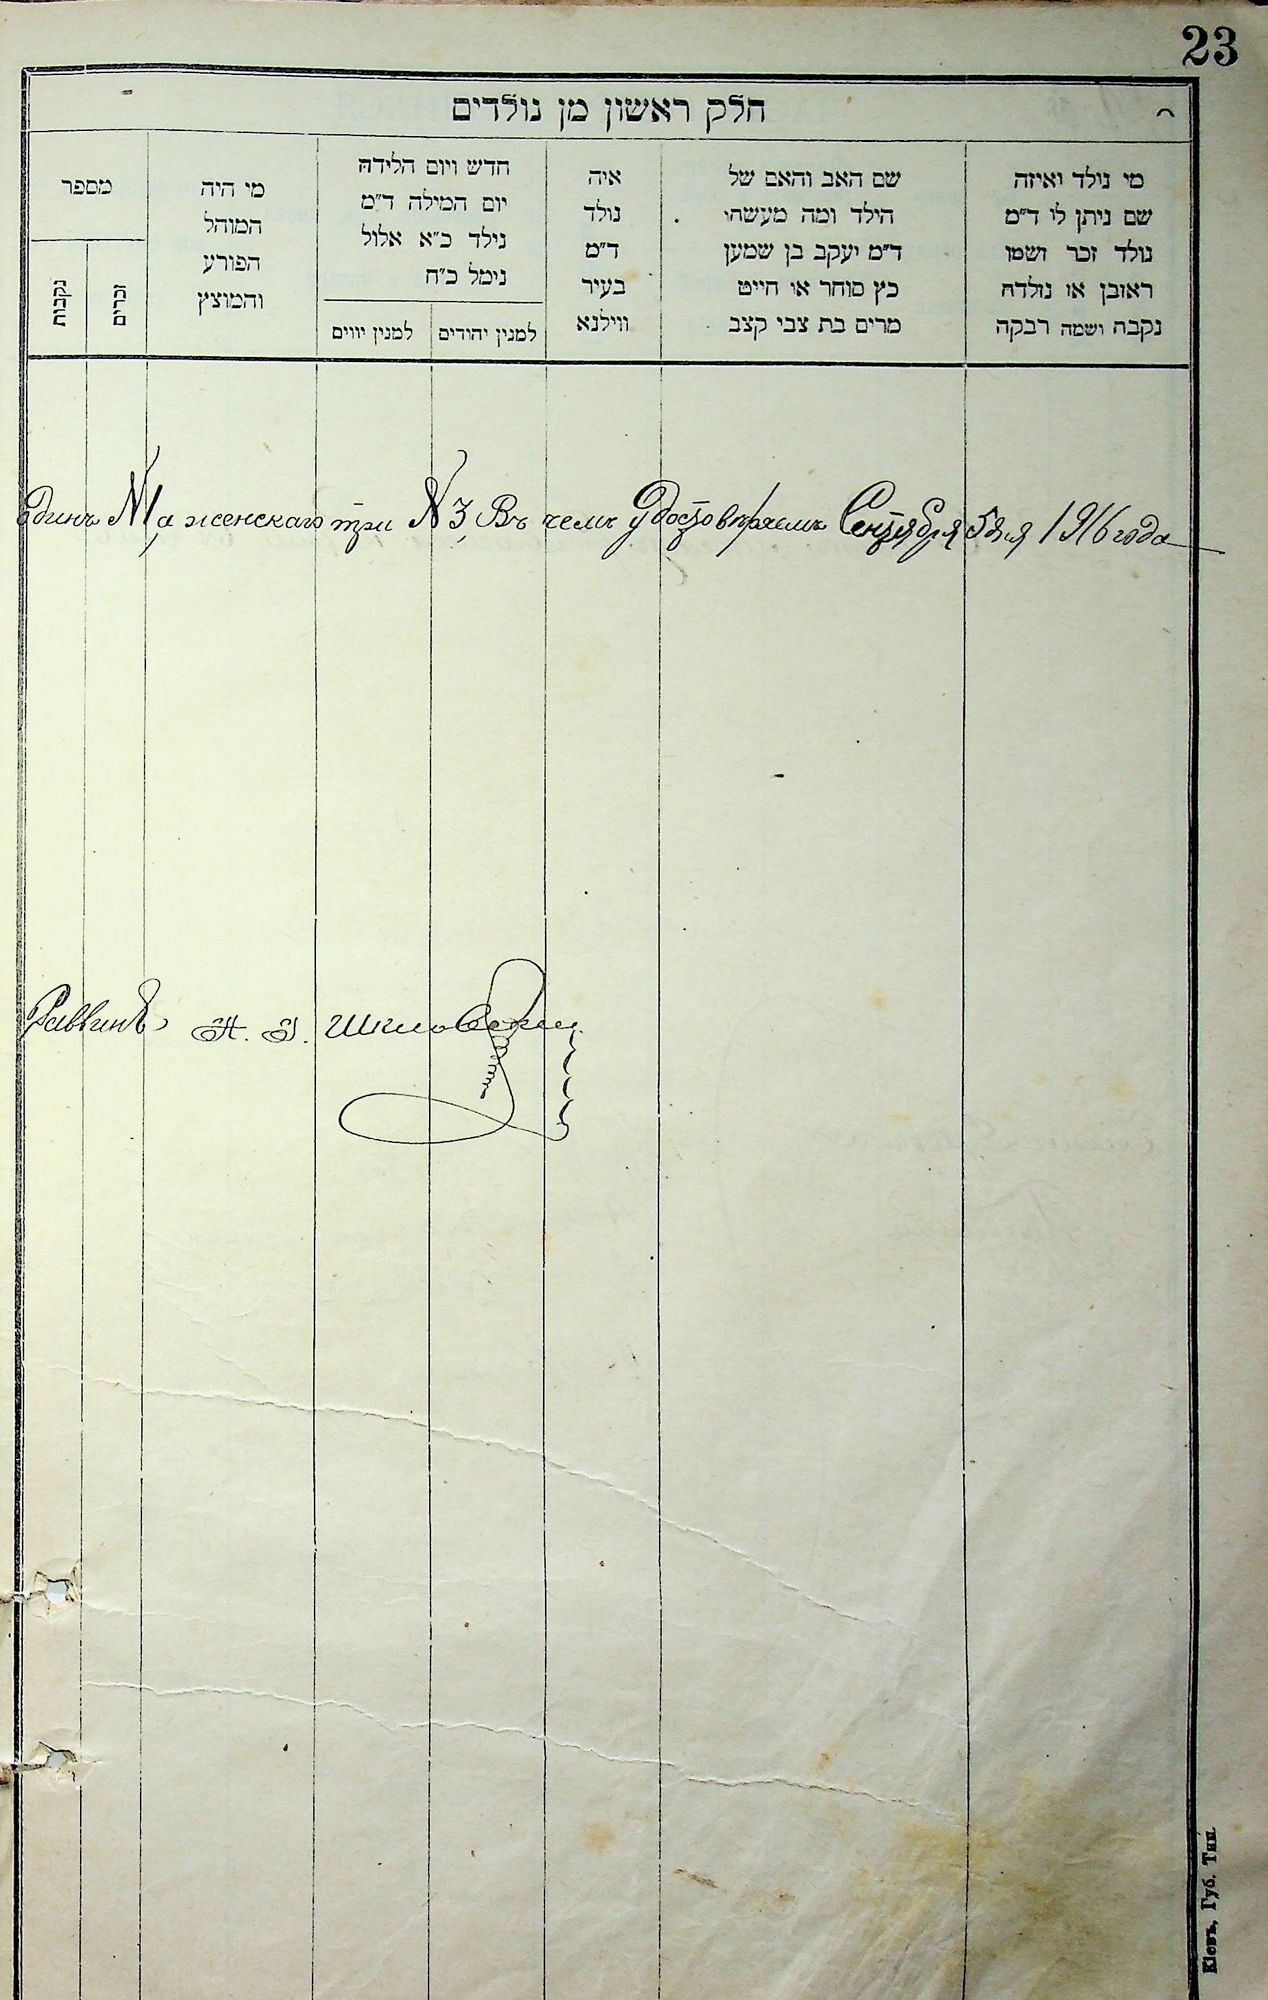 23
חלק ראשון מן נולדים
מי נולד ואיזה
שם ניתן לו ד״מ
נולד זכר ושמו
ראובן או נולדה
נקבה ושמה רבקה
שם האב והאם של
הילד ומה מעשהו
ד״מ יעקב בן שמעון
כץ סוחר או חייט
מרים בת צבי קצב
איה
נולד
ד״מ
בעיר
ווילנא
חדש ויום הלידה
יום המילה ד״מ
נילד כ״א אלול
נימל כ״ח
למנין יהודים
למנין יווים
מי היה
המוהל
הפורע
והמוצץ
מספר
זכרים
נקבות
одинъ №1, а женскаго три №3, Въ чемъ Удостовѣряемъ Сентября 5 дня 1916 года
Раввинъ Шкловскій
Кіевъ, Губ. Тип.